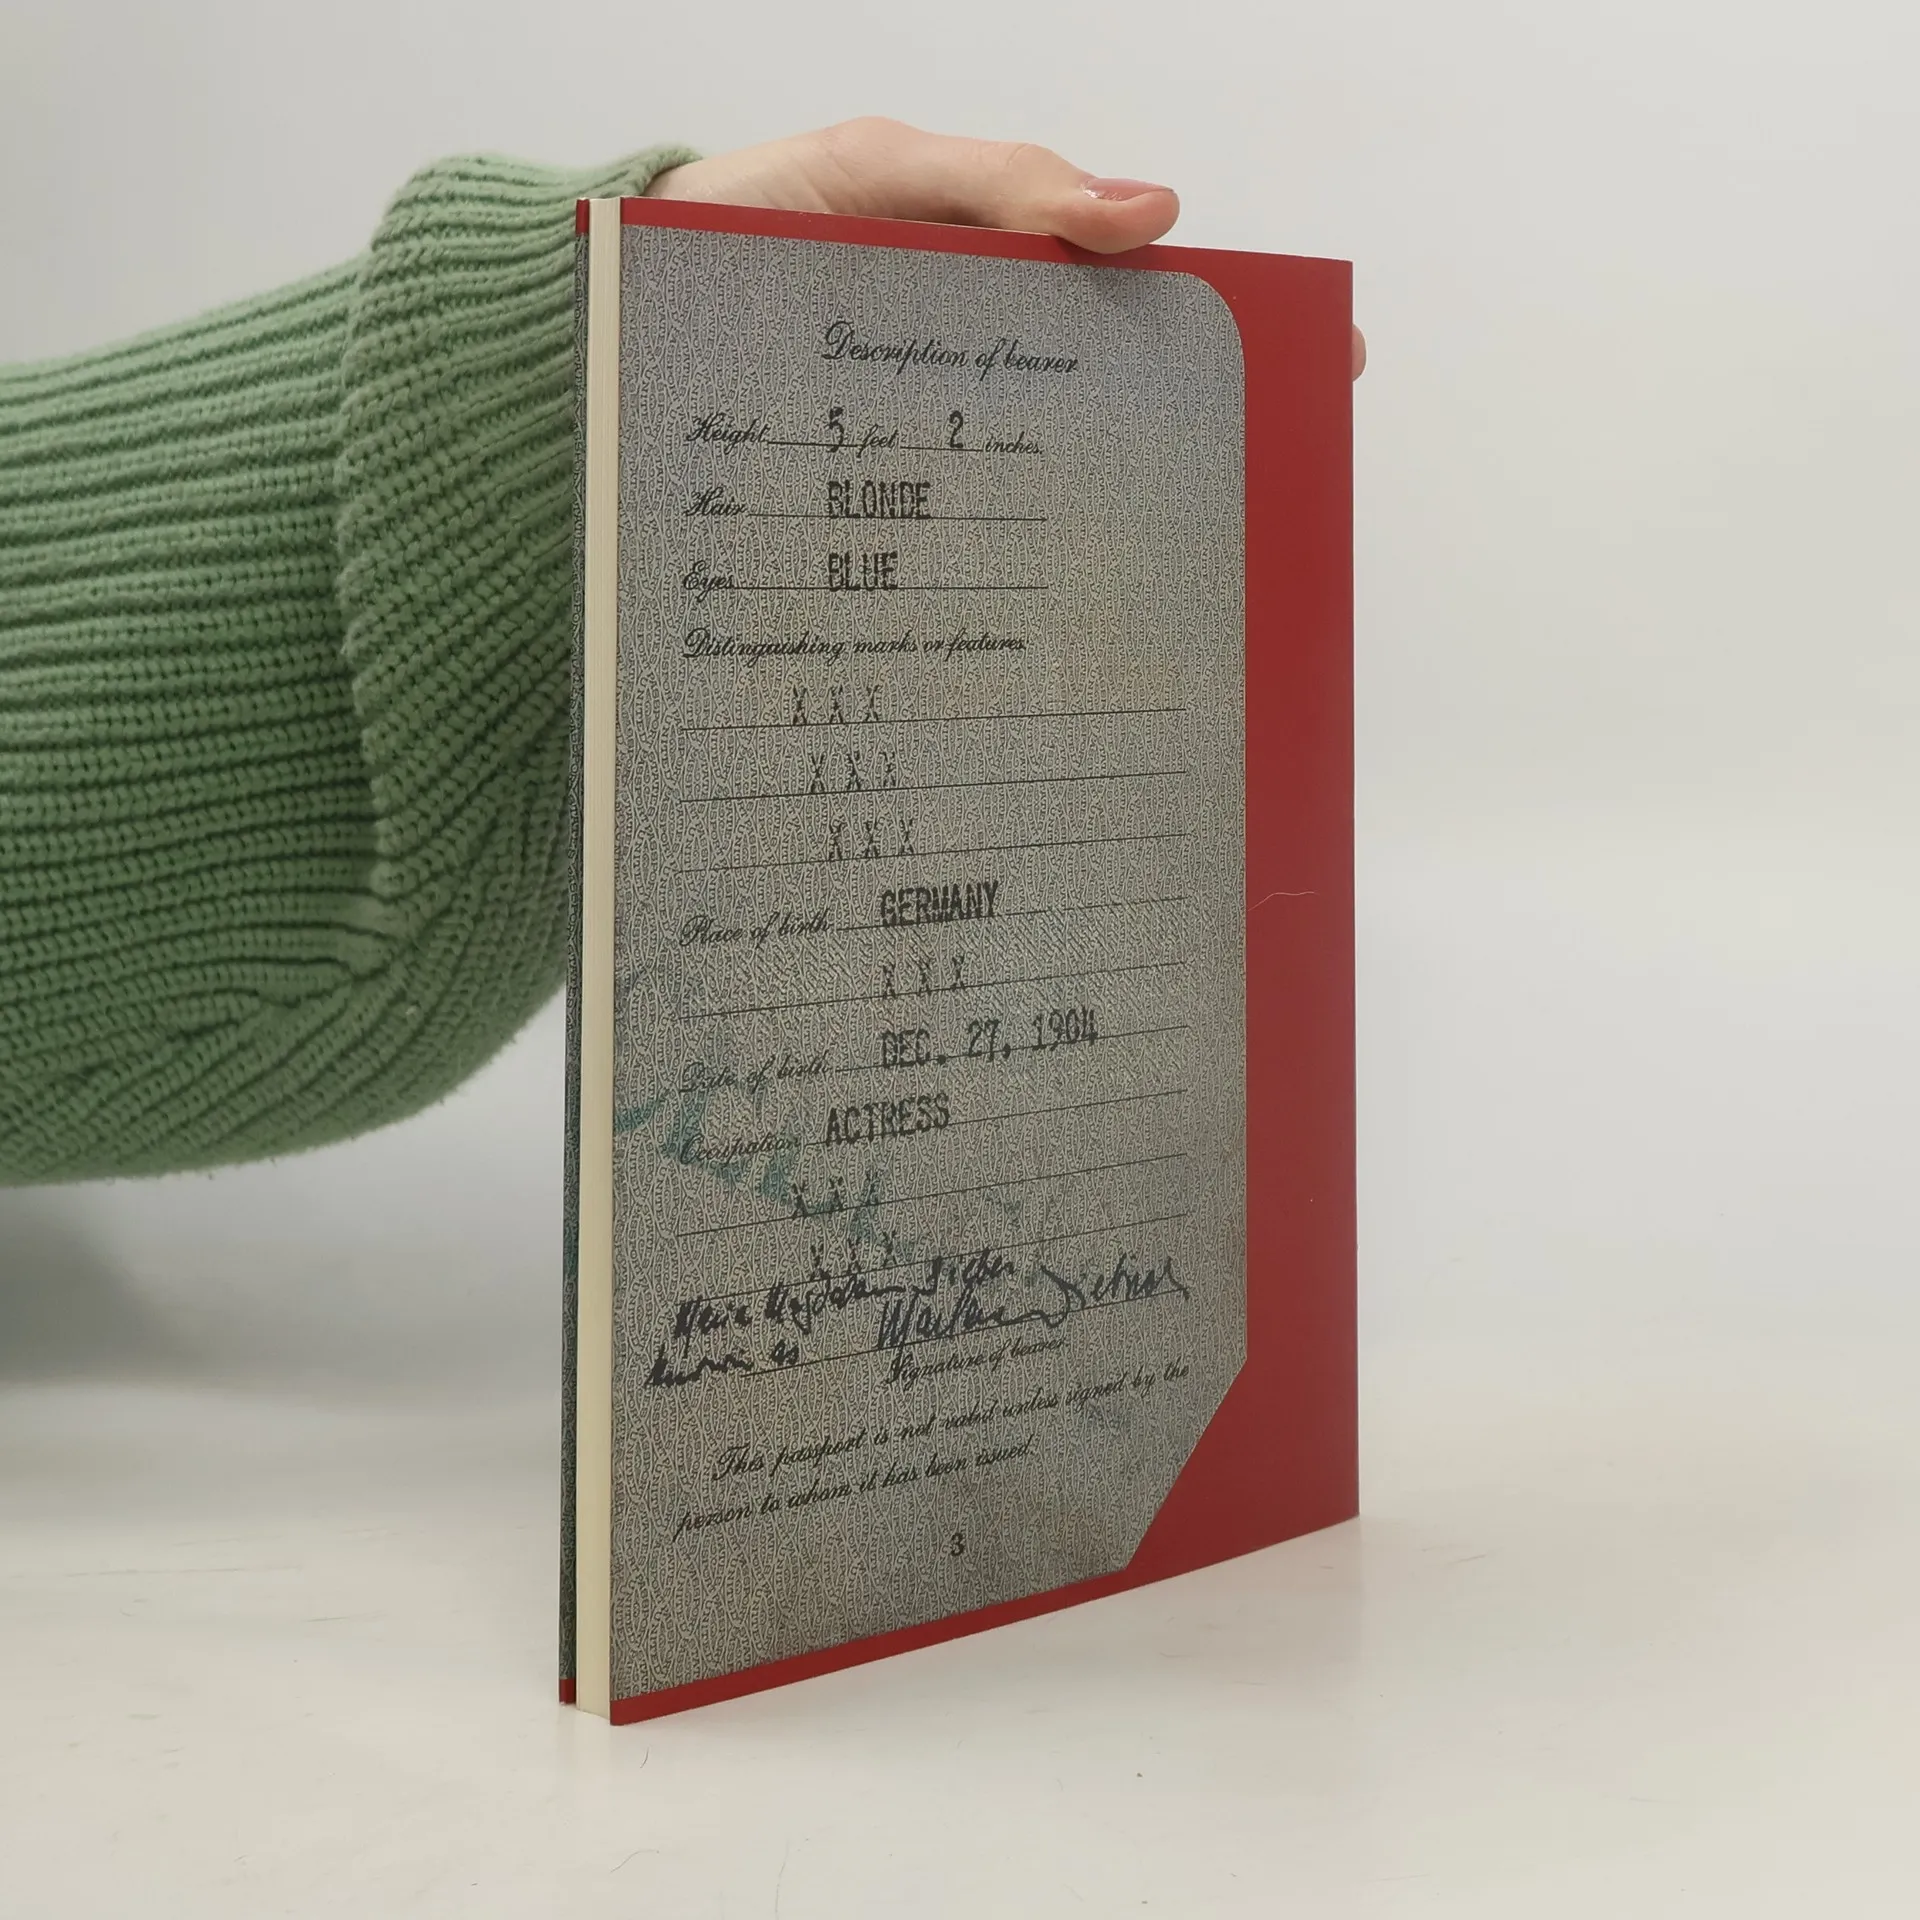 Description of bearer
Height 5 feet 2 inches.
Hair BLONDE
Eyes BLUE
Distinguishing marks or features
X X X
X X X
X X X
Place of birth GERMANY
X X X
Date of birth DEC. 27, 1904
Occupation ACTRESS
X X X
X X X
Marie Magdalena Sieber
known as Marlene Dietrich
Signature of bearer
This passport is not valid unless signed by the
person to whom it has been issued.
3